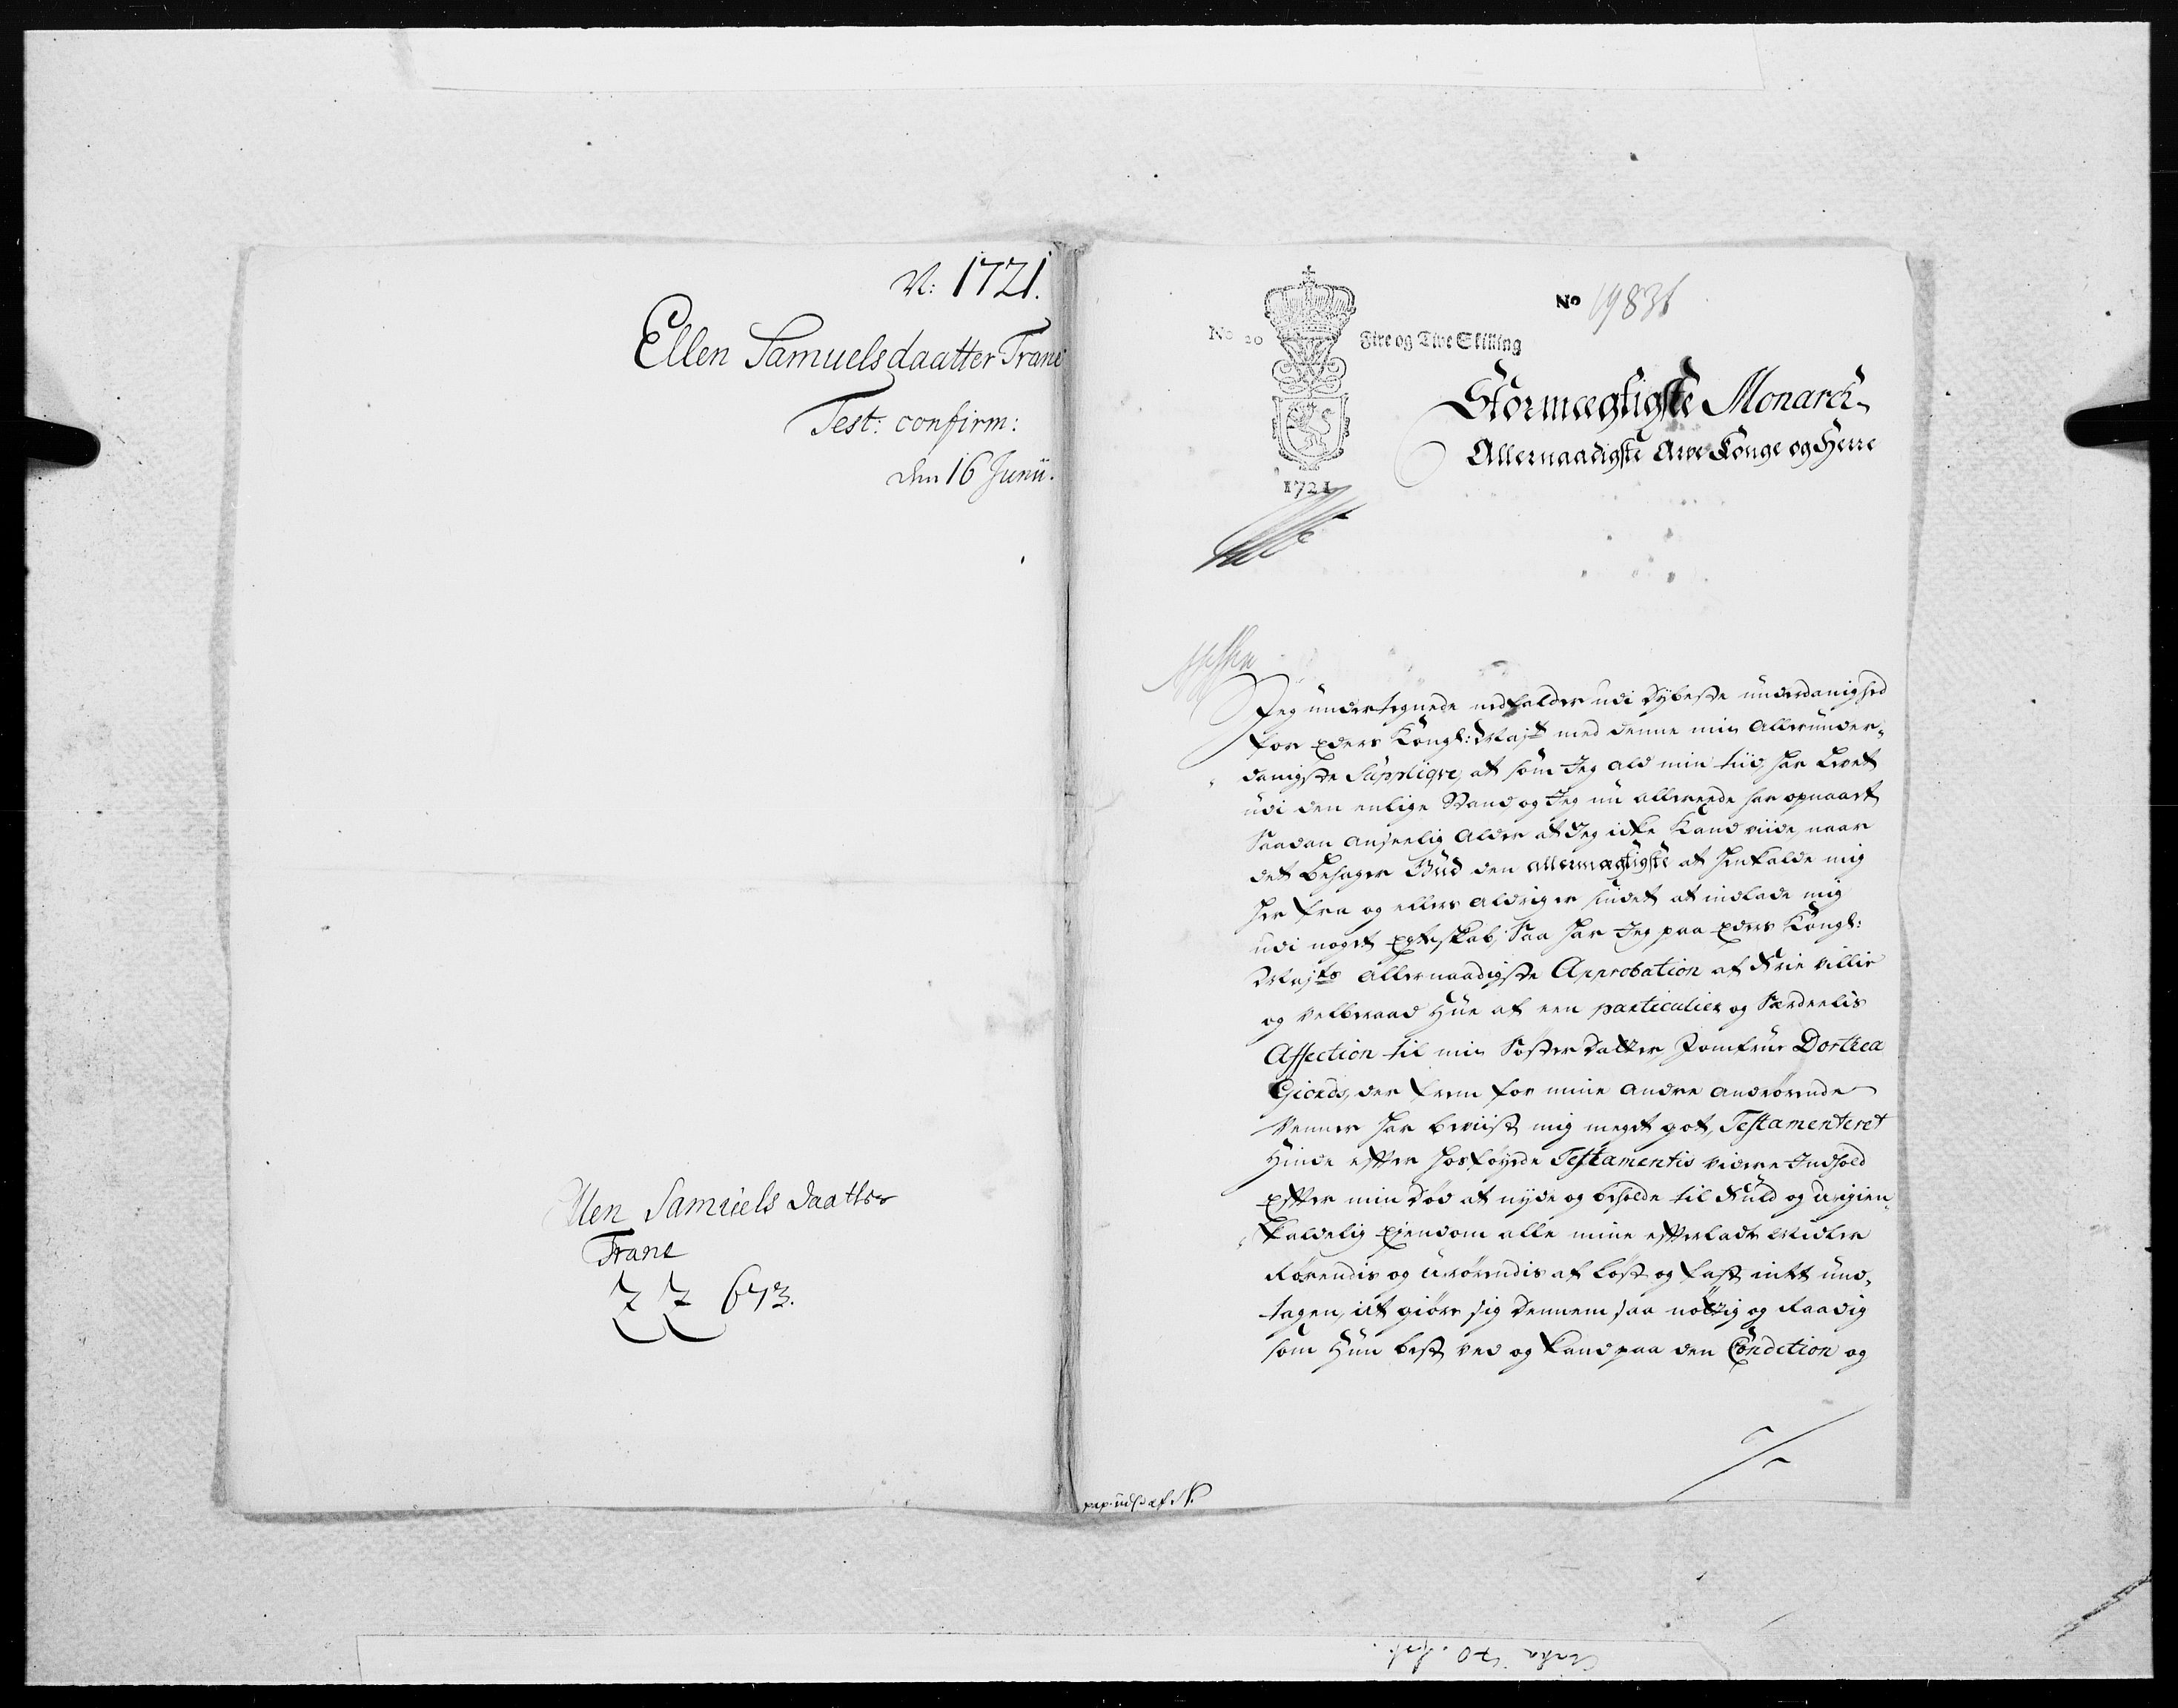 N: 1721.
Ellen Samuelsdaatter Trane
Test: confirm:
den 16 Junii.
Ellen Samuels Daatter
Trane
7 7 673.
No 20
Fire og Tive Skilling
1721
No 19836
Stormægtigste Monarch
Allernaadigste Arve Konge og Herre
Jeg undertegnede nedfalder udi dybeste underdanighed
for Eders Kongl: Majt med denne min allerunder-
danigste Supplique, at som Jeg ald min tiid har levet
udi den enlige Stand, og Jeg nu allereede har opnaaet
Saadan anseelig alder at Jeg icke kand viide, naar
det behager Gud den allermægtigste at henkalde mig
her fra og ellers aldrig er sindet at indlade mig
udi noget Egteskab, Saa har Jeg paa Eders Kongl:
Majts allernaadigste Approbation af Frie villie
og velberaad Hue af een particulier og Særdeelis
Affection til min Søster Datter Jomfrue Dorthea
Gierds, der frem for mine andre anrørende
Venner har beviist mig meget got, Testamenteret
Hinde efter hosføyede Testamentis videre Indhold
Efter min død at nyde og beholde til Fuld og uigien-
kaldelig Ejendom alle mine efterladte Midler
Rørendis og urørendis af løst og fast intet und-
tagen, at giøre sig dennem saa nøttig og Raadig
som Hun best ved og kand paa den Condition og